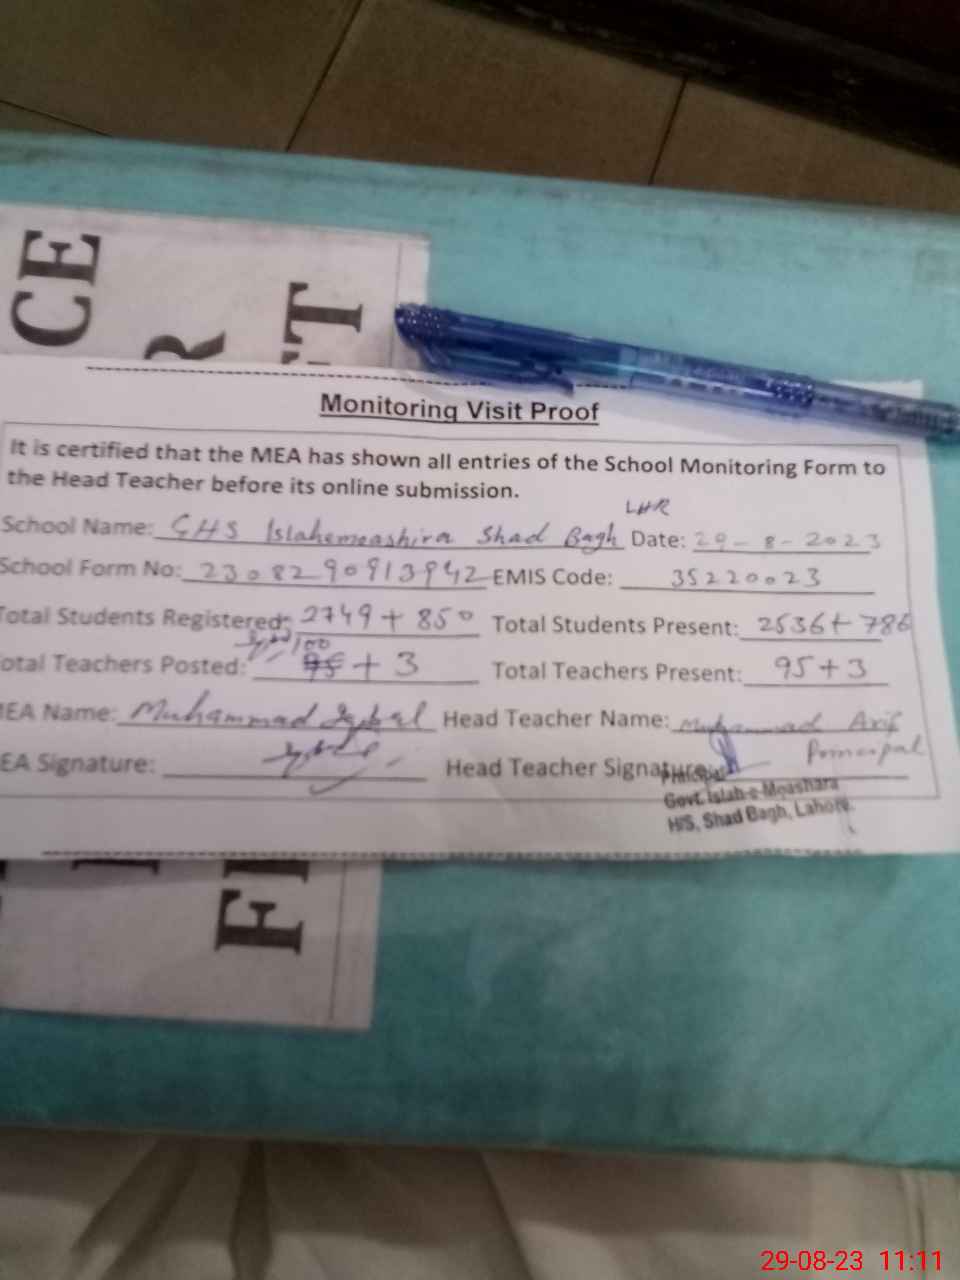 CE
R
T
Monitoring Visit Proof
It is certified that the MEA has shown all entries of the School Monitoring Form to
the Head Teacher before its online submission.
LHR
School Name: GHS Islahemeashira Shad Bagh Date: 29-8-2023
School Form No: 2308290913942 EMIS Code: 35220023
Total Students Registered: 2749 + 850 Total Students Present: 2536 + 786
100
Total Teachers Posted: 95 + 3 Total Teachers Present: 95 + 3
MEA Name: Muhammad Iqbal Head Teacher Name: Muhammad Arif
Principal
EA Signature: Head Teacher Signature:
Principal
Govt. Islah-e-Moashara
H/S, Shad Bagh, Lahore.
F
29-08-23 11:11